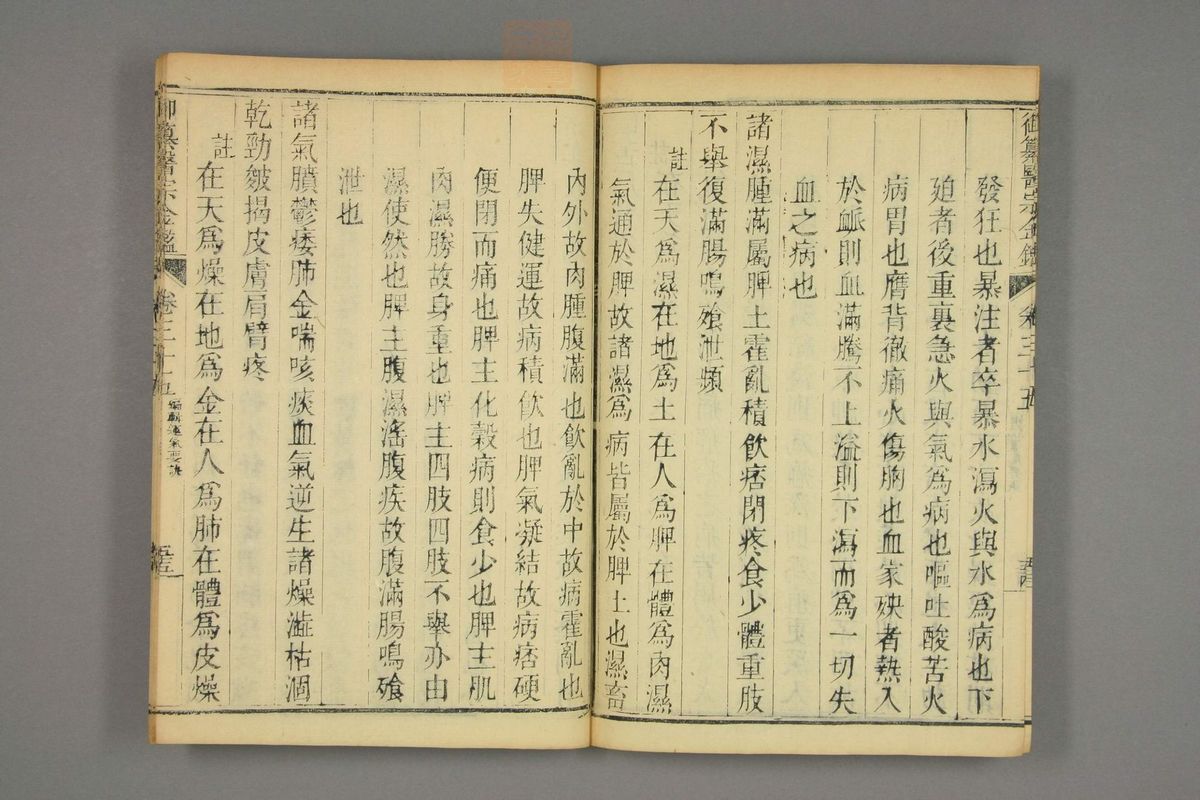 御纂醫宗金鑑 卷三十五
發狂也暴注者卒暴水瀉火與水為病也下
廹者後重裏急火與氣為病也嘔吐酸苦火
病胃也膺背徹痛火傷胸也血家殃者熱入
於衇則血滿騰不上溢則下瀉而為一切失
血之病也
諸濕腫滿屬脾土霍亂積飲痞閉疼食少體重肢
不舉復滿腸鳴飧泄頻
註
在天為濕在地為土在人為脾在體為肉濕
氣通於脾故諸濕為病皆屬於脾土也濕畜
內外故肉腫腹滿也飲亂於中故病霍亂也
脾失健運故病積飲也脾氣凝結故病痞硬
便閉而痛也脾主化穀病則食少也脾主肌
肉濕勝故身重也脾主四肢四肢不舉亦由
濕使然也脾主腹濕滛腹疾故腹滿腸鳴飧
泄也
諸氣膹鬱痿肺金喘咳痰血氣逆生諸燥澁枯涸
乾勁皴揭皮膚肩臂疼
註
在天為燥在地為金在人為肺在體為皮燥
御纂醫宗金鑑 卷三十五 編輯運氣要訣